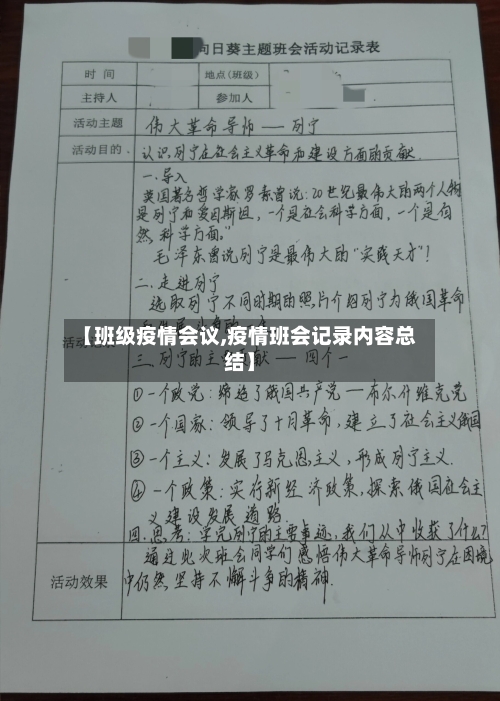 向日葵主题班会活动记录表
时 间
地点(班级)
主持人
参加人
活动主题
伟大革命导师——列宁
活动目的.
认识列宁在社会主义革命和建设方面的贡献.
一.导入
英国著名哲学家罗素曾说:20世纪最伟大的两个人物
是列宁和爱因斯坦,一个是社会科学方面,一个是自
然科学方面。"
毛泽东曾说列宁是最伟大的"实践天才"!
二.走进列宁
选取列宁不同时期的照片介绍列宁为俄国革命
【班级疫情会议,疫情班会记录内容总
结】
三.列宁的主要贡献——四个一
①一个政党:缔造了俄国共产党—布尔什维克党
②一个国家:领导了十月革命,建立了社会主义俄国
③一个主义:发展了马克思主义,形成列宁主义.
④一个政策:实行新经济政策,探索俄国社会主
义建设发展道路
四.思考:学完列宁的主要事迹,我们从中收获了什么?
活动效果
通过此次班会同学们感悟伟大革命导师列宁在困境
中仍然坚持不懈斗争的精神.